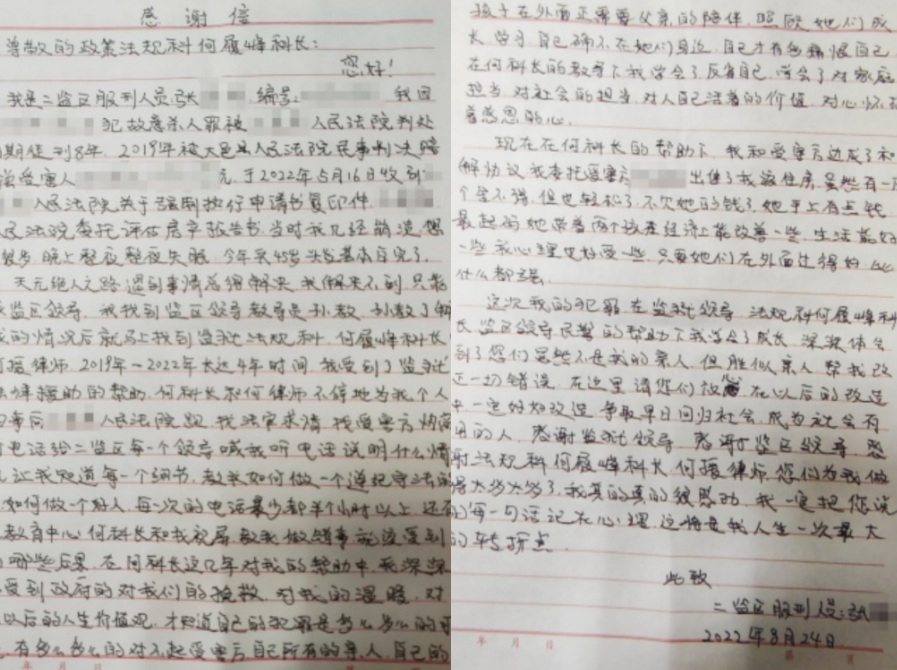 感谢信
尊敬的政策法规科何履峰科长：
您好！
我是二监区服刑人员张 编号: 我因
犯故意杀人罪被 人民法院判处
期徒刑8年，2019年被大邑县人民法院民事判决赔
偿受害人 元，于2022年5月16日收到
人民法院关于强制执行申请书复印件，
民法院委托评估房产报告书，当时我几经崩溃，想
晚上整夜整夜失眠，今年来45岁头发基本白完了。
天无绝人之路，遇到事情总得解决，我解决不到，只靠
监区领导，我找到监区领导教导员孙教，孙教了解
我的情况后就马上找到监狱法规科，何履峰科长
何援律师，2019年－2022年长达4年时间，我受到了监狱
法律援助的帮助，何科长和何律师不停地为我个人
的事向 人民法院跑，找法官求情，找受害方协商
打电话给二监区每一个领导喊我听电话说明什么情
让我知道每一个细节，教我如何做一个遵纪守法的
如何做一个好人，每一次的电话最少都半个小时以上，还在
教育中心何科长和我视屏，教我做错事就该受到
哪些后果，在何科长这几年对我的帮助中，我深深
受到政府的对我们的挽救，对我的温暖，对
以后的人生价值观，才知道自己的犯罪是多么多么的可
有多么多么的对不起受害方自己所有的亲人，自己的
孩子在外面正需要父亲的陪伴，照顾她们成
长学习，自己确不在她们身边，自己才有多痛恨自己，
在何科长的教导下我学会了反省自己，学会了对家庭
担当，对社会的担当，对人自己活着的价值，对心怀
着感恩的心。
现在在何科长的帮助下，我和受害方达成了和
解协议，我委托受害方 出售了我该住房，虽然有一
个舍不得，但也轻松了，不欠她的钱了，她手上有点钱，
最起码她带着两个孩在经济上能改善一些，生活能好
一些，我心理也好受一些，只要她们在外面过得好，比
什么都强。
这次我的犯罪，在监狱领导，法规科何履峰科
长，监区领导民警的帮助下我学会了成长，深深体会
到了您们虽然不是我的亲人，但胜似亲人，帮我改
正一切错误，在这里请您们放心，在以后的改造
中一定好好改造，争取早日回归社会，成为社会有
用的人，感谢监狱领导，感谢监区领导，感
谢法规科何履峰科长，何援律师，您们为我做
得太多太多了，我真的真的很感动，我一定把您说
的每一句话记在心理，这将是我人生一次最大
的转拐点。
此致
二监区服刑人员：张
2022年8月24日
年 月 日
年 月 日